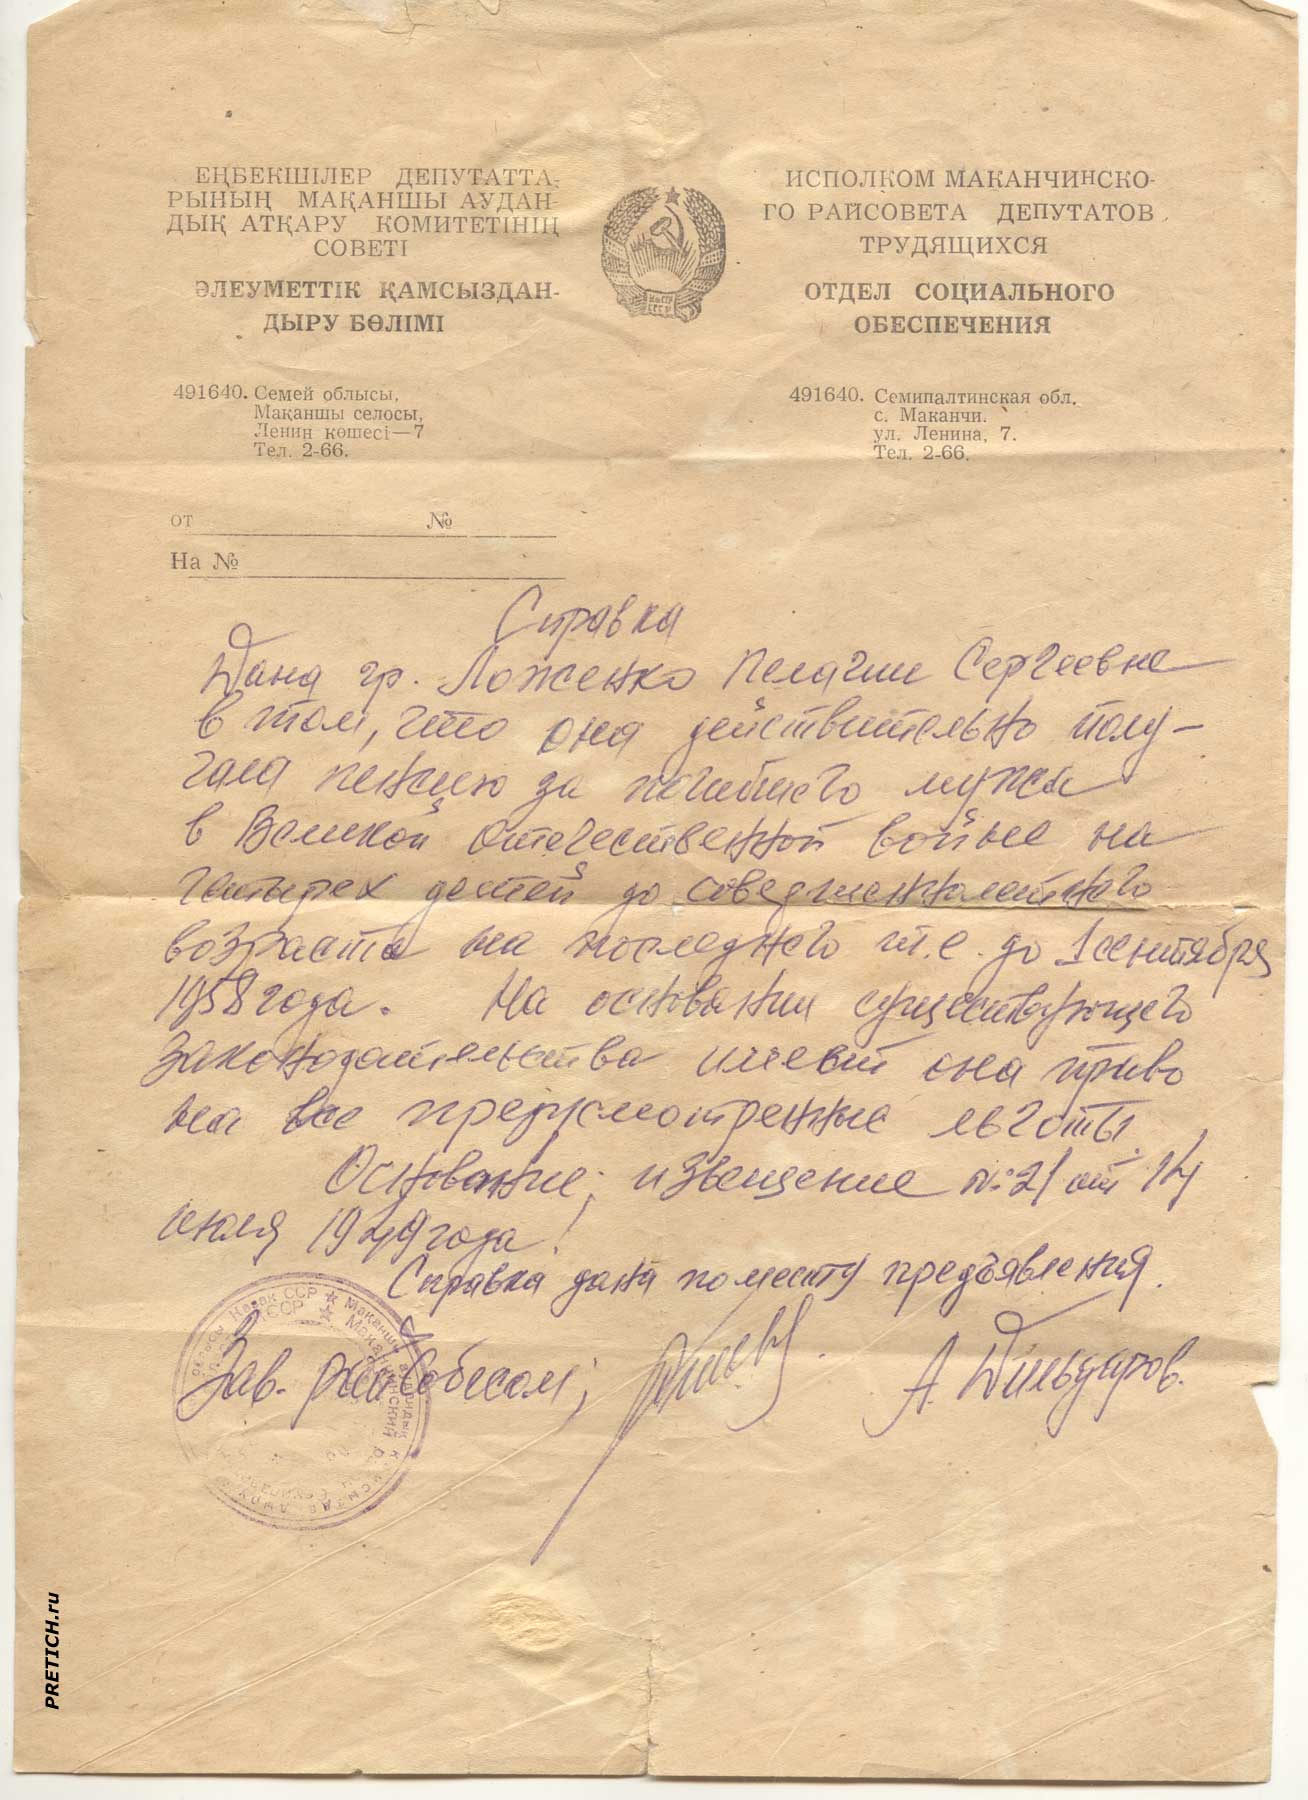 ЕҢБЕКШІЛЕР ДЕПУТАТТА-
РЫНЫҢ МАҚАНШЫ АУДАН-
ДЫҚ АТҚАРУ КОМИТЕТІНІҢ
СОВЕТІ
ӘЛЕУМЕТТІК ҚАМСЫЗДАН-
ДЫРУ БӨЛІМІ
491640. Семей облысы,
Мақаншы селосы,
Ленин көшесі—7
Тел. 2-66.
ИСПОЛКОМ МАКАНЧИНСКО-
ГО РАЙСОВЕТА ДЕПУТАТОВ
ТРУДЯЩИХСЯ
ОТДЕЛ СОЦИАЛЬНОГО
ОБЕСПЕЧЕНИЯ
491640. Семипалтинская обл.
с. Маканчи.
ул. Ленина, 7.
Тел. 2-66.
от №
На №
Справка
Дана гр. Ложенко Пелагии Сергеевне
в том, что она действительно полу-
чала пенсию за погибшего мужа
в Великой Отечественной войне на
четырех детей до
возраста на последнего т.е. до 1 сентября
1958 года. На основании существующего
законодательства имеет она право
на все предусмотренные льготы.
Основание; извещение №21 от 14
июля 1949 года!
Справка дана по месту предъявления.
Зав. райсобесом;
А. Дильдупаров.
Қазақ ССР ★ Мақаншы аудандық
ССР ★ Маканчинский
PRETICH.ru